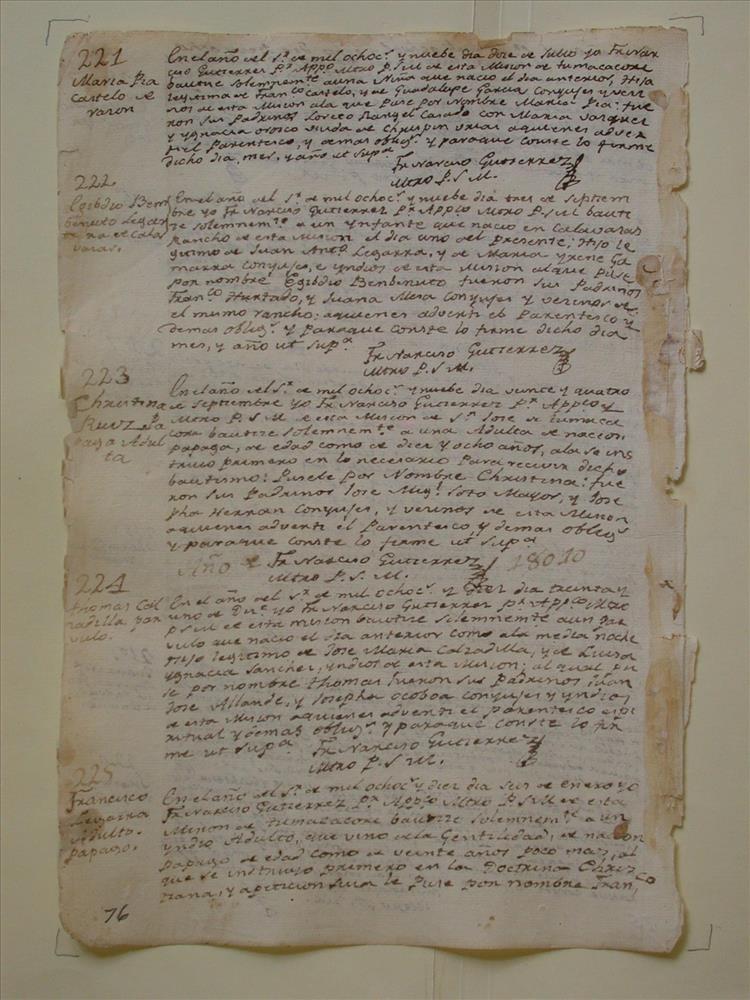 221
Maria Pia
Castelo de
razon
En el año del S.r de mil ochoc.s y nuebe dia doze de Julio yo Fr. Nar
ciso Gutierrez P.r App.co Mtro P.S.M de esta Mision de tumacacore
bautize Solemnem.te a una Niña que nacio el dia anterior, Hija
legitima de Fran.co Castelo, y de Guadalupe Garcia Conyujes y veci
nos de esta Mision ala que Puse por Nombre Maria Pia: fue
ron Sus Padrinos Loreto Rangel Casado con Maria Vasquez
y Ygnacia Orosco viuda de Chrispin urias aquienes adver
ti el Parentesco, y demas oblig.s y paraque conste lo firme
dicho dia, mes, y año ut sup.a
Fr. Narciso Gutierrez
Mtro P. S. M.
222
Egibdio Ben
benuto Legar
ra de Cala
varas.
En el año del S.r de mil ochoc.s y nuebe dia tres de Septiem
bre yo Fr. Narciso Gutierrez P.r App.co Mtro P.S.M bauti
ze Solemnem.te a un Ynfante que nacio en Calavazas
Rancho de esta Mision el dia uno del presente; Hijo le
gitimo de Juan Ant.o Legarra, y de Maria Yrene Ga
marra Conyujes, e yndios de esta Mision alque Puse
por nombre Egibdio Benbenuto fueron Sus Padrinos
Fran.co Hurtado, y Juana Mesa Conyujes y vecinos de
el mismo rancho: aquienes adverti el Parentesco y
demas oblig.s y paraque conste lo firme dicho dia
mes, y año ut sup.a
Fr. Narciso Gutierrez
Mtro P. S. M.
223
Christina
Ruiz
paga Adul
ta
En el año del S.r de mil ochoc.s y nuebe dia veinte y quatro
de Septiembre yo Fr. Narciso Gutierrez P.r App.co y
Mtro P. S. M de esta Mision de S.n Jose de tumaca
core bautize Solemnem.te a una Adulta de nacion
papaga, de edad como de diez y ocho años, ala se ins
truio primero en lo necesario Para recivir dicho
bautismo: Pusele por Nombre Christina: fue
ron Sus Padrinos Jose Mig.l Soto Mayor, y Jose
pha Herran Conyujes, y vecinos de esta Mision
aquienes adverti el Parentesco, y demas oblig.s
y paraque conste lo firme ut Sup.a
Fr. Narciso Gutierrez
Mtro P. S. M.
Año de 18010
224
Thomas Cal
zadilla par
vulo.
En el año del S.r de mil ochoc.s y diez dia treinta y
uno de yo Fr. Narciso Gutierrez P.r App.co Mtro
P S M de esta mision bautize Solemnemte aun Par
vulo que nacio el dia anterior como ala media noche
Hijo legitimo de Jose Maria Calzadilla, y de Luisa
Ygnacia Sanchez, yndios de esta Mision; al qual Pu
se por nombre Thomas fueron Sus Padrinos Juan
Jose Allande, y Josepha Ocoboa Conyujes y yndios
de esta Mision aquienes adverti el parentesco espi
ritual y demas oblig.s y paraque conste lo fir
me ut Sup.a
Fr. Narciso Gutierrez
Mtro P. S. M.
225
Francisco
Legarra
Adulto
papago.
En el año del S.r de mil ochoc.s y diez dia Seis de Enero yo
Fr. Narciso Gutierrez P.r App.co Mtro P S M de esta
Mision de tumacacore bautize Solemnem.te a un
yndio Adulto, que vino de la Gentilidad, de nacion
Papago de edad como de veinte años poco mas, al
que se instruio primero en la Doctrina Chris
tiana, y a peticion Suia le Puse por nombre Fran.co
76